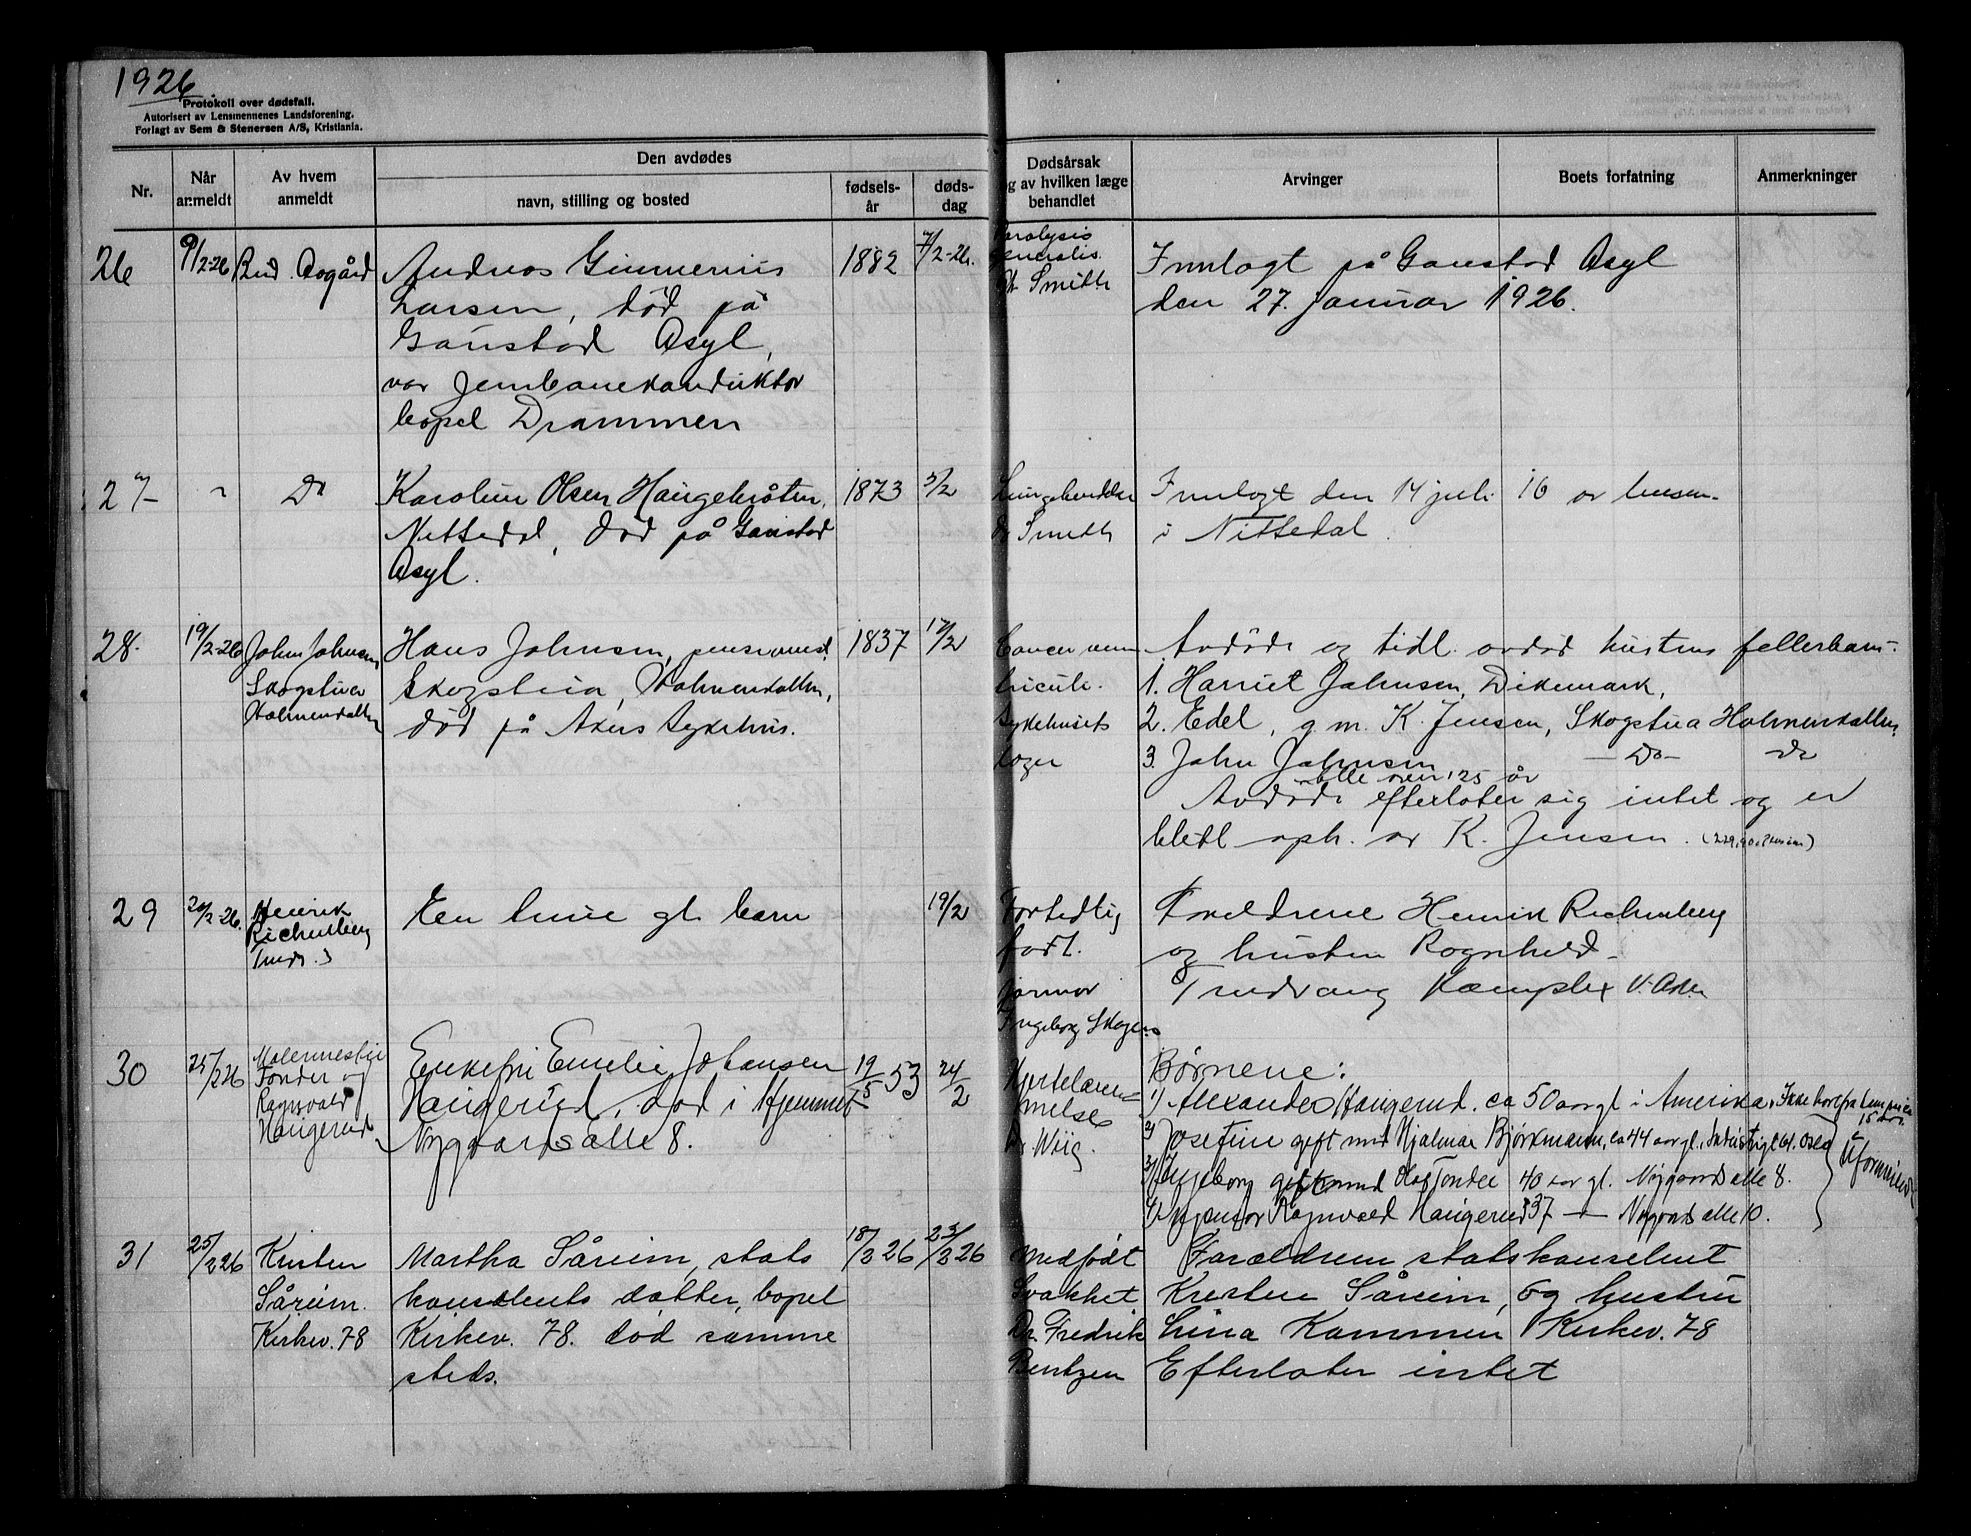 1926.
Protokoll over dødsfall.
Autorisert av Lensmennenes Landsforening.
Forlagt av Sem & Stenersen A/S, Kristiania.
Nr.
Når anmeldt
Av hvem anmeldt
Den avdødes
navn, stilling og bosted
fødselsår
dødsdag
Dødsårsak og av hvilken læge behandlet
Arvinger
Boets forfatning
Anmerkninger
26 9/2-26 Aasgård
Andreas Gunnerius 1882 7/2-26.
Larsen, død på
Gaustad Asyl,
var Jernbanekonduktor
bopel Drammen
Paralysis
generalis.
Dr Smith
Innlagt på Gaustad Asyl
den 27. januar 1926.
27 " Do
Karoline Olsen Haugebråten, 1873 5/2
Nittedal, død på Gaustad
Asyl.
Dr Smith
Innlagt den 14 juli 16 av lensm.
i Nittedal.
28. 19/2-26 John Johnsen
Skogstua
Holmenkollen
Hans Johnsen, 1837 17/2
Skogstua, Holmenkollen,
død på Akers sykehus.
Cancer
sykehusets
læger
Avdøde og tidl. avdød hustrus fellesbarn:
1. Harriet Johnsen, Dikemark,
2. Edel, g.m. K. Jensen, Skogstua Holmenkollen,
3. John Johnsen — Do — Do
alle over 25 år
Avdøde efterlater sig intet og er
blitt oph. av K. Jensen.
29 20/2-26. Henrik
En time gl. barn 19/2
Fortidlig
født.
jormor
Ingeborg Skogen
Foreldrene Henrik
og hustru Ragnhild
Kamplex V. Aker
30 25/2 26
Tonder og
Ragnvald
Haugerud
Enkefru Emelie Johansen 19/5 53 24/2
Haugerud, død i Hjemmet
Nygaards alle 8.
Hjertelammelse
Dr Wiig.
Børnene:
1) Alexander Haugerud. ca 50 aar gl i Amerika,
2) Josefine gift med Hjalmar Björkmann, ca 44 aar gl.,
3) Ingeborg gift med Olaf Tonder 40 aar gl. Nygaards alle 8.
4) Ragnvald Haugerud 37 — Nygaards alle 10.
31 25/2 26 Kristen
Såreim.
Kirkev. 78
Martha Såreim, stats 18/2 26 23/2 26
konsulents datter, bopel
Kirkev. 78. død samme
steds.
Medfødt
Svakhet
Dr. Fredrik
Bentzen
Foreldrene statskonsulent
Kristen Såreim, og hustru
Lina Kammen Kirkev. 78
Efterlater intet